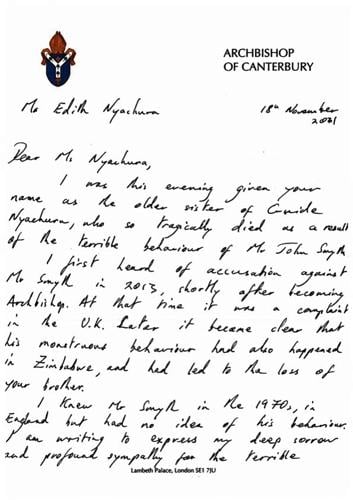 ARCHBISHOP
OF CANTERBURY
Ms Edith Nyachuru
18th November
2021
Dear Ms. Nyachuru,
I was this evening given your
name as the older sister of Guide
Nyachuru, who so tragically died as a result
of the terrible behaviour of Mr John Smyth
I first heard of accusation against
Mr Smyth in 2013, shortly after becoming
Archbishop. At that time it was a complaint
in the U.K. Later it became clear that
his monstrous behaviour had also happened
in Zimbabwe, and had led to the loss of
your brother.
I knew Mr Smyth in the 1970s, in
England but had no idea of his behaviour.
I am writing to express my deep sorrow
and profound sympathy for the terrible
Lambeth Palace, London SE1 7JU